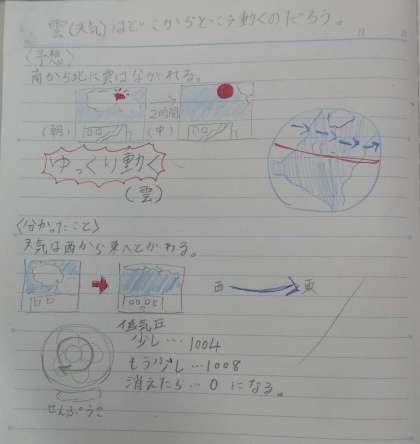 雲(天気)はどこからどこへ動くのだろう。
〈予想〉
南から北に雲はながれる。
(朝) 2時間 (中)
ゆっくり動く
(雲)
〈分かったこと〉
天気は西から東へとかわる。
西 東
低気圧
少し…1004
もう少し…1008
消えたら…0になる。
せんぷうき